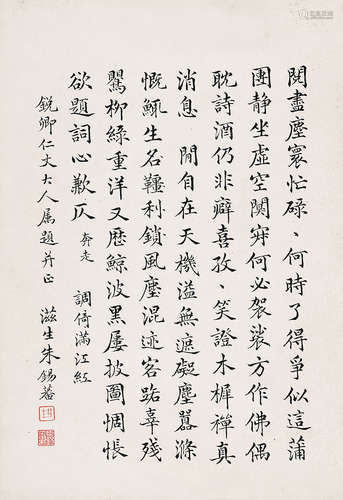 閱盡塵寰忙碌、何時了得爭似這蒲
團静坐虛空闃寂何必袈裟方作佛偶
耽詩酒仍非癖喜孜、笑證木樨禪真
消息 閒自在天機溢無遮礙塵囂滌
慨鯫生名韁利鎖風塵混迹客路辜殘
鸎柳綠重洋又歷鯨波黑屢披圖惆悵
欲題詞心歉仄 奔走 調倚滿江紅
銳卿仁丈大人属題并正 滋生朱錫